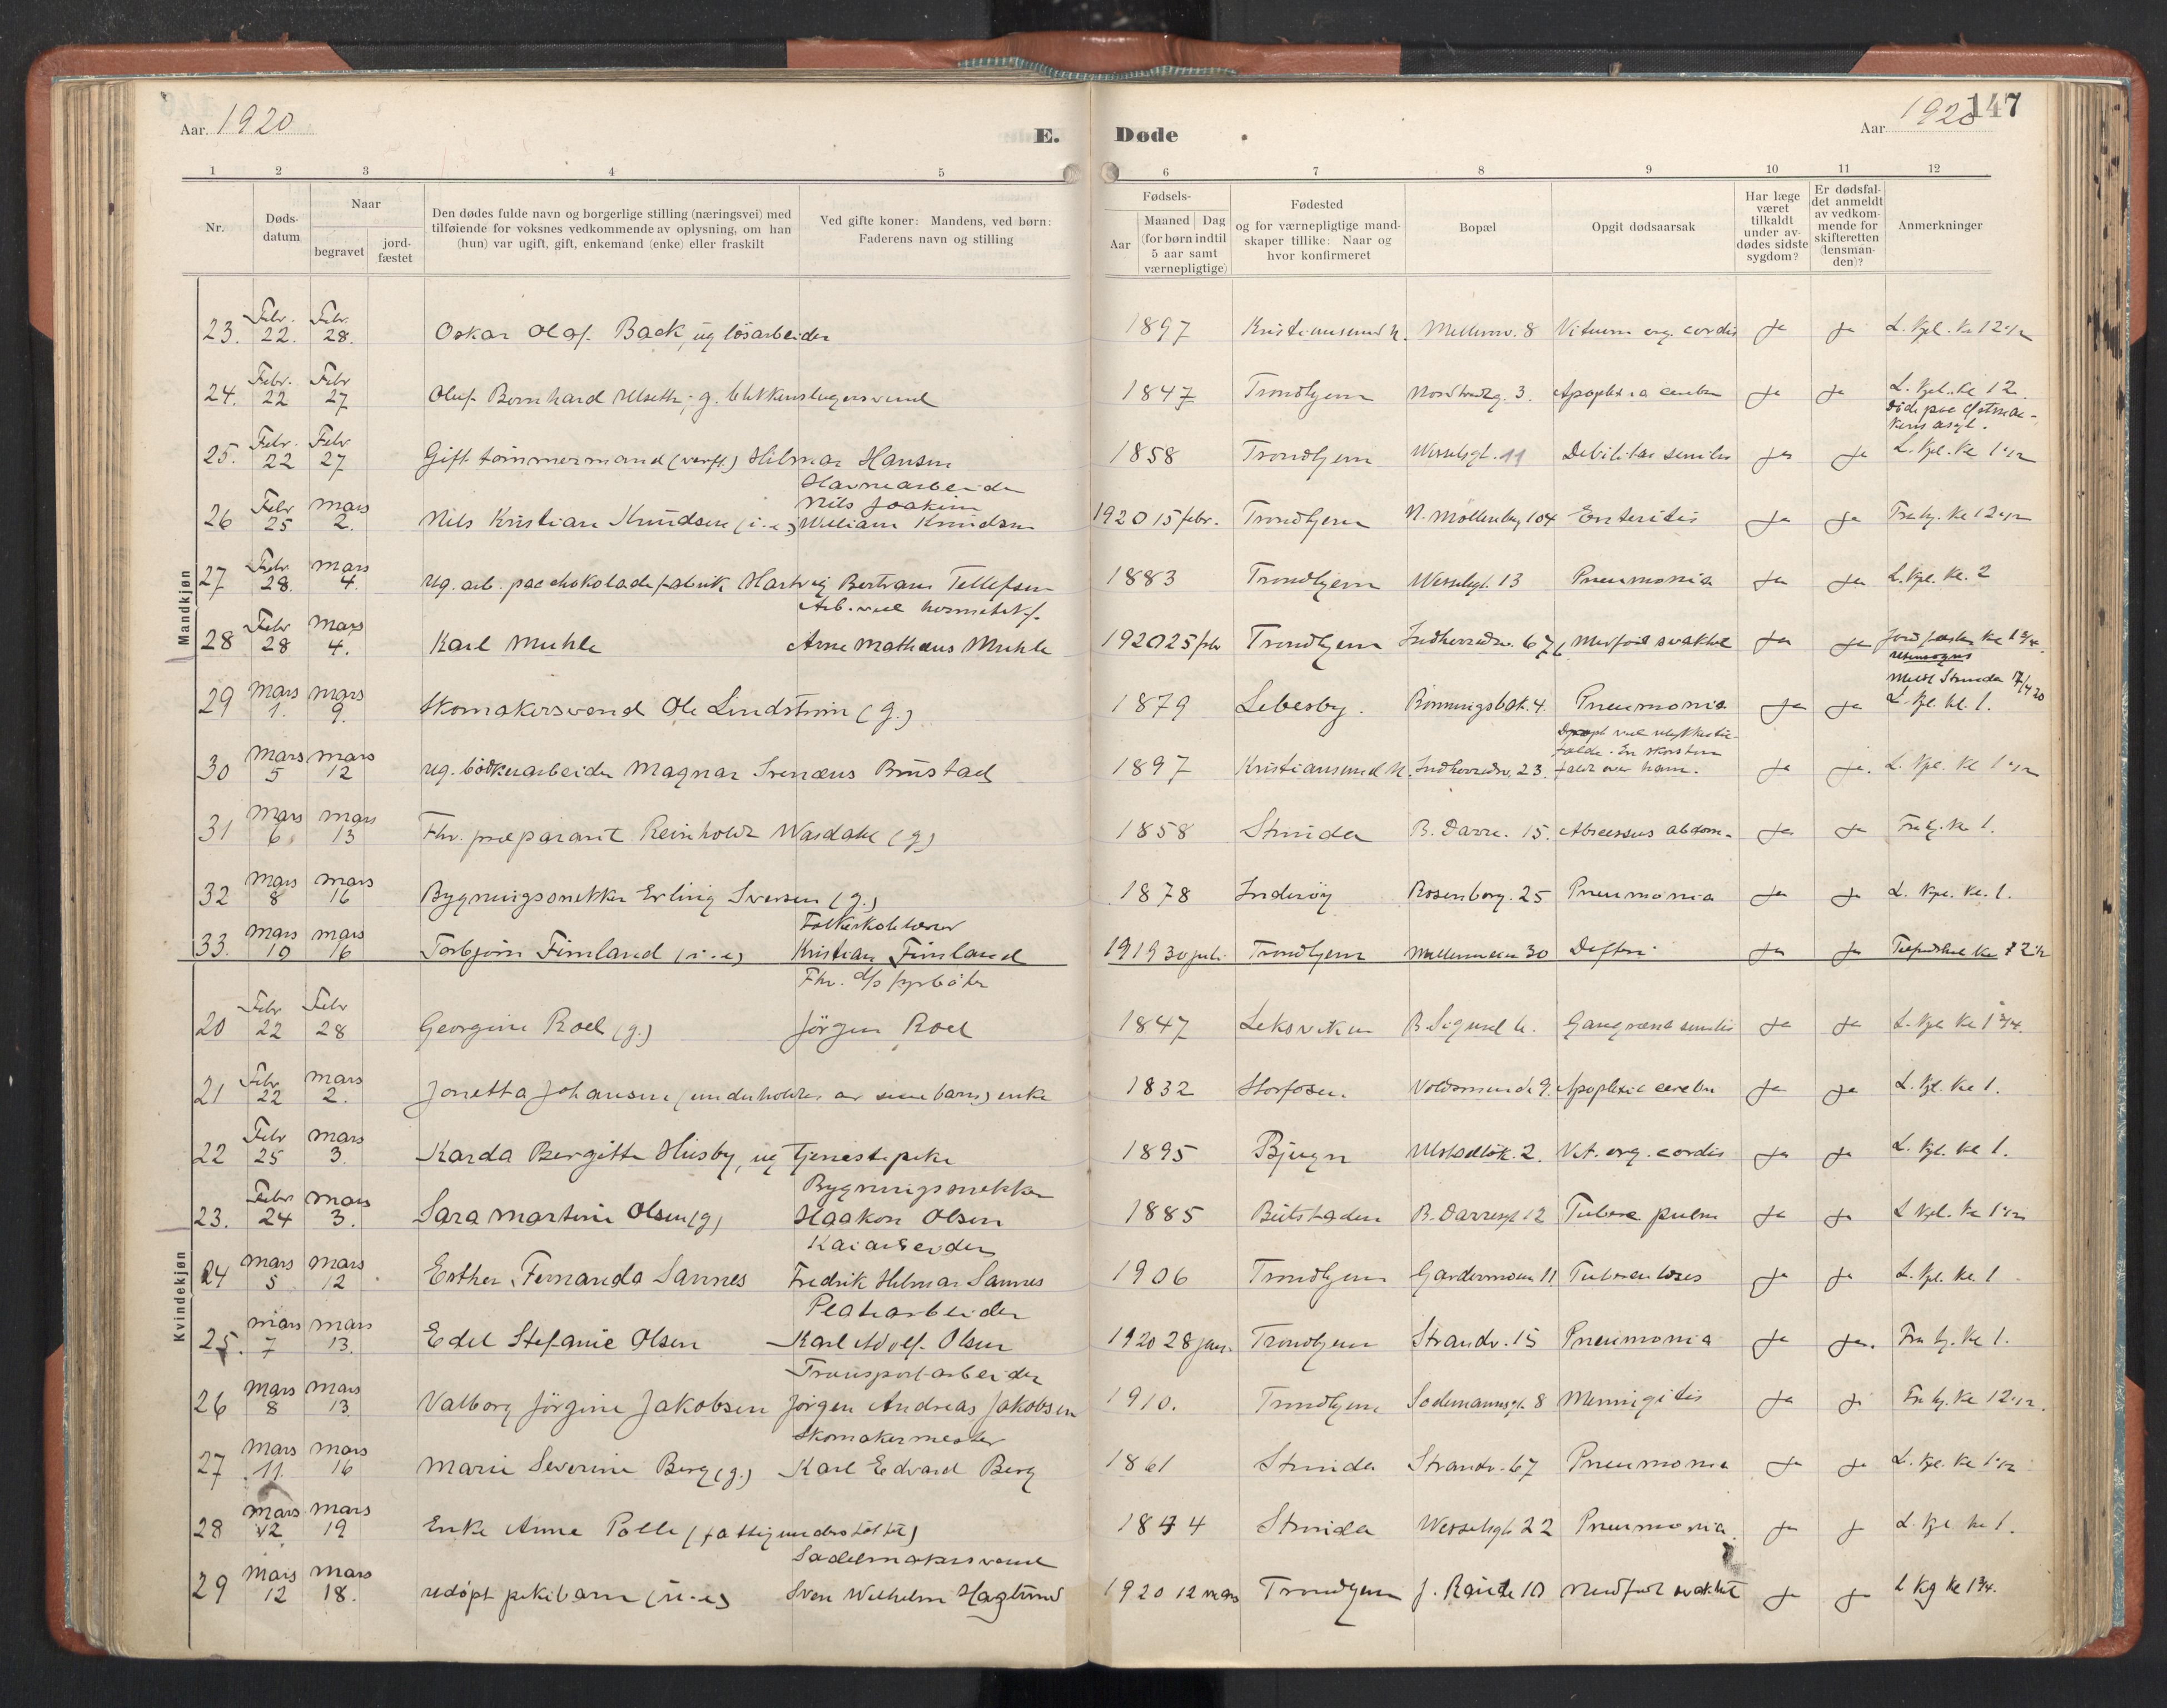 Aar. 1920 E. Døde Aar 1920 147
1 2 3 4 5 6 7 8 9 10 11 12
Nr.
Døds-datum
Naar
begravet
jord-fæstet
Den dødes fulde navn og borgerlige stilling (næringsvei) med
tilføiende for voksnes vedkommende av oplysning, om han
(hun) var ugift, gift, enkemand (enke) eller fraskilt
Ved gifte koner: Mandens, ved børn:
Faderens navn og stilling
Fødsels-
Aar
Maaned Dag
(for børn indtil
5 aar samt
værnepligtige)
Fødested
og for værnepligtige mand-
skaper tillike: Naar og
hvor konfirmeret
Bopæl
Opgit dødsaarsak
Har læge
været
tilkaldt
under av-
dødes sidste
sygdom?
Er dødsfal-
det anmeldt
av vedkom-
mende for
skifteretten
(lensman-
den)?
Anmerkninger
Mandkjøn
23. Febr. 22. Febr. 28. Oskar Olaf Back, ug løsarbeider 1897 Kristiansund N. Mellemv. 8 Vitium org. cordis Ja Ja L. Kpl. Kl 12 1/2
24. Febr. 22 Febr 27 Oluf Bernhard Ulseth, g. blikkenslagersvend 1847 Trondhjem Nordredg. 3. Apoplexia cerebri Ja Ja L. Kpl. Kl 12.
Døde paa
asyl.
25. Febr. 22 Febr 27 Gift tømmermand (verft.) Hilmar Hansen 1858 Trondhjem Wesselsgt. 11 Debilitas senilis Ja Ja L. Kpl. Kl 1 1/2
Havnearbeider
Nils Joakim
26 Febr 25 mars 2. Nils Kristian Knudsen (i.e) William Knudsen 1920 15 febr. Trondhjem N. Møllenberg 104 Enteritis Ja Ja Kl 12 1/2
27 Febr. 28. mars 4. ug. arb. paa chokoladefabrik Hartvig Bertram Tellefsen 1883 Trondhjem Wesselsgt. 13 Pneumonia Ja Ja L. Kpl. Kl. 2
Arb. ved hermetikf.
28 Febr 28 mars 4. Karl Muhle Arne Mathæus Muhle 1920 25 febr Trondhjem Indherredsv. 67 Medfød svakhet Ja Ja Jordfæstet Kl 1 3/4.
utensogns
Meldt Strinda 7/4 20
29 mars 1. mars 9. Skomakersvend Ole Lindstrøm (g.) 1879 Lebesby. Rønningsbak. 4. Pneumonia Ja Ja L. Kpl. kl. 1.
ved ulykkestil-
fælde. En skorsten
30 mars 5 mars 12 ug. bødkerarbeider Magnar Irenæus Brustad 1897 Kristiansund N. Indherredsv. 23. faldt over ham. Ja Ja. L. Kpl. Kl 1 1/2
31 mars 6 mars 13 Fhv. præparant Reinholdt Wasdahl (g) 1858 Strinda B. Darre. 15. Abscessus abdom. Ja Ja Kl 1.
32 mars 8 mars 16 Bygningssnekker Erling Iversen (g.) 1878 Inderøy Rosenborg. 25 Pneumonia Ja Ja L. Kpl. Kl. 1.
Folkeskolelærer
33. mars 10 mars 16 Torbjørn Finnland (i.e) Kristian Finnland 1919 30 juli Trondhjem Mellemveien 30 Difteri Ja Ja Kl
Kvindekjøn
Fhv. d/s fyrbøter
20 Febr 22 Febr 28 Georgine Roel (g.) Jörgen Roel 1847 Leksviken B. Sigurd b. Gangræna senilis Ja Ja L. Kpl Kl 1 3/4.
21 Febr. 22 mars 2. Jonetta Johansen (underholdtes av sine barn) enke 1832 Storfosen. Voldsminde 9. Apoplexia cerebri Ja Ja L. Kpl. Kl 1.
22 Febr 25 mars 3. Karda Bergitte Husby, ug tjenestepike 1895 Bjugn Ulstadløk. 2. Vit. org. cordis Ja Ja L. Kpl. kl 1.
Bygningssnekker
23. Febr 24 mars 3. Sara Martine Olsen (g) Haakon Olsen 1885 Beitstaden B. Darresgt 12 Tuberc pulm Ja Ja L Kpl. Kl 1 1/2
Kaiarbeider
24 mars 5 mars 12 Esther Fernanda Sannes Fredrik Hilmar Sannes 1906 Trondhjem Gardermoen 11 Tuberculoses Ja Ja L. Kpl. Kl. 1
Platearbeider
25. mars 7 mars 13. Edel Stefanie Olsen Karl Adolf Olsen 1920 28 jan. Trondhjem Strandv. 15 Pneumonia Ja Ja. Kl 1.
Transportarbeider
26 mars 8 mars 13. Valborg Jörgine Jakobsen Jörgen Andreas Jakobsen 1910. Trondhjem Sodemannsgt. 8 Meningitis Ja Ja Kl 12 1/2.
Skomakermester
27 mars 11. mars 16 Marie Severine Berg (g.) Karl Edvard Berg 1861 Strinda Strandv. 67 Pneumonia Ja Ja L. Kpl. Kl 1 1/2
28 mars 12 mars 19 Enke Anne Polle (fattigunderstøttet) 1844 Strinda Wesselsgt. 22 Pneumonia Ja Ja L. Kpl kl 1.
Sadelmakersvend
29 mars 12 mars 18. udøpt pikebarn (u.e) Sven Wilhelm Haglund 1920 12 mars Trondhjem J. Rande 10 Medfød svakhet Ja Ja L Kg Kl 1 3/4.